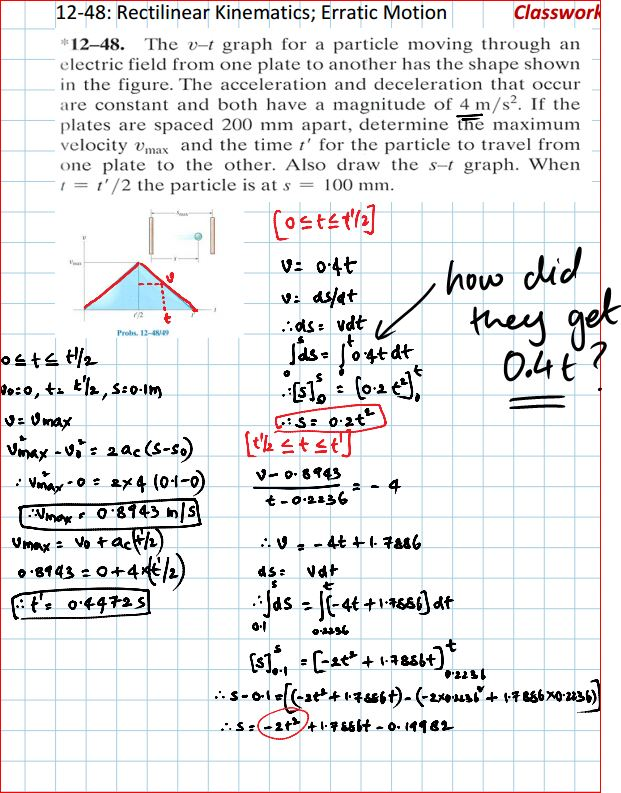 12-48: Rectilinear Kinematics; Erratic Motion
Classwork
*12–48. The v–t graph for a particle moving through an
electric field from one plate to another has the shape shown
in the figure. The acceleration and deceleration that occur
are constant and both have a magnitude of 4 m/s². If the
plates are spaced 200 mm apart, determine the maximum
velocity vmax and the time t' for the particle to travel from
one plate to the other. Also draw the s–t graph. When
t = t'/2 the particle is at s = 100 mm.
smax
s
v
vmax
v
t
t'/2
t'
t
Probs. 12–48/49
0≤t≤t'/2
v0=0, t= t'/2, s=0.1m
v= vmax
vmax² - v0² = 2ac(s-s0)
∴ vmax² - 0 = 2×4 (0.1-0)
∴ vmax = 0.8943 m/s
vmax = v0 + ac(t'/2)
0.8943 = 0+4×(t'/2)
∴ t' = 0.4472 s
[0≤t≤t'/2]
v= 0.4t
v= ds/dt
∴ ds = vdt
∫₀ˢ ds = ∫₀ᵗ 0.4t dt
∴ [s]₀ˢ = [0.2 t²]₀ᵗ
∴ s = 0.2t²
[t'/2 ≤t≤t']
(v-0.8943)/(t-0.2236) = -4
∴ v = -4t +1.7886
ds = vdt
∴ ∫ds = ∫(-4t+1.7886) dt
s
0.1
t
0.2236
[s]ˢ0.1 = [-2t² + 1.7886t]ᵗ0.2236
∴ s-0.1 = [(-2t²+1.7886t)-(-2×0.2236² + 1.7886×0.2236)]
∴ s = -2t² +1.7886t - 0.19982
how did
they get
0.4t?